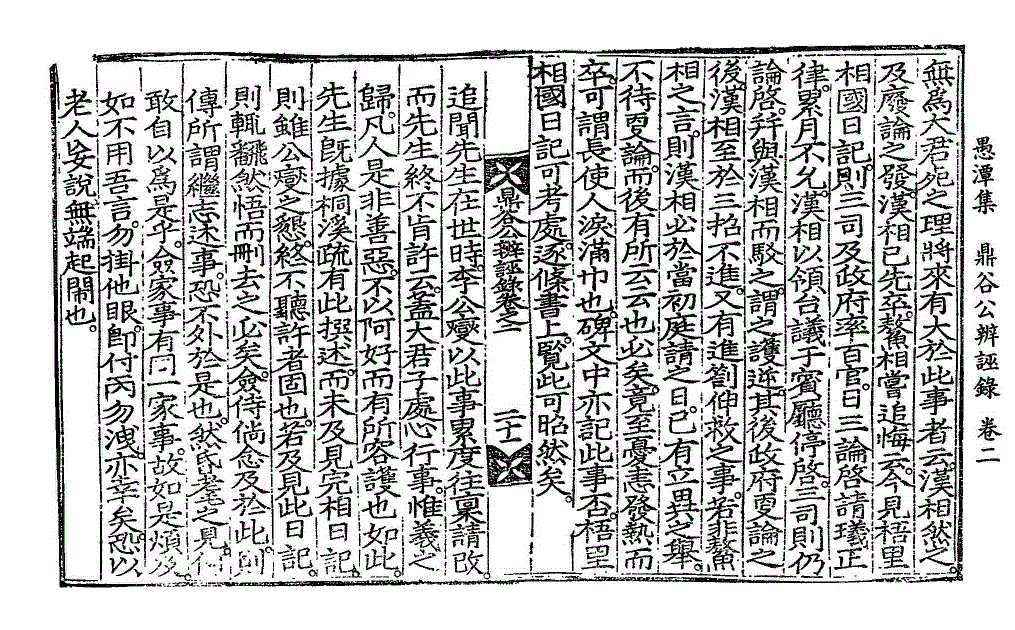 愚潭集 鼎谷公辨誣錄 卷二
無爲大君死之理將來有大於此事者云漢相然之
及廢論之發漢相已先卒鰲相嘗追悔云今見梧里
相國日記則三司及政府率百官日三論啓請㼁正
律累月不允漢相以領台議于賓廳停啓三司則仍
論啓幷與漢相而駁之謂之護逆其後政府更論之
後漢相至於三招不進又有進劄伸救之事若非鰲
相之言則漢相必於當初庭請之日已有立異之擧
不待更論而後有所云云也必矣竟至憂恚發熱而
卒可謂長使人淚滿巾也碑文中亦記此事否梧里
相國日記可考處逐條書上覽此可昭然矣
鼎谷公辨誣錄卷之二 二十一
追聞先生在世時李公燮以此事累度往稟請改
而先生終不肯許云盖大君子處心行事惟義之
歸凡人是非善惡不以何好而有所容護也如此
先生旣據桐溪疏有此撰述而未及見完相日記
則雖公燮之懇終不聽許者固也若及見此日記
則輒飜然悟而刪去之必矣僉侍倘念及於此則
傳所謂繼志述事恐不外於是也然昏耄之見何
敢自以爲是乎僉家事有同一家事故如是煩及
如不用吾言勿掛他眼卽付丙勿洩亦幸矣恐以
老人妄說無端起鬧也